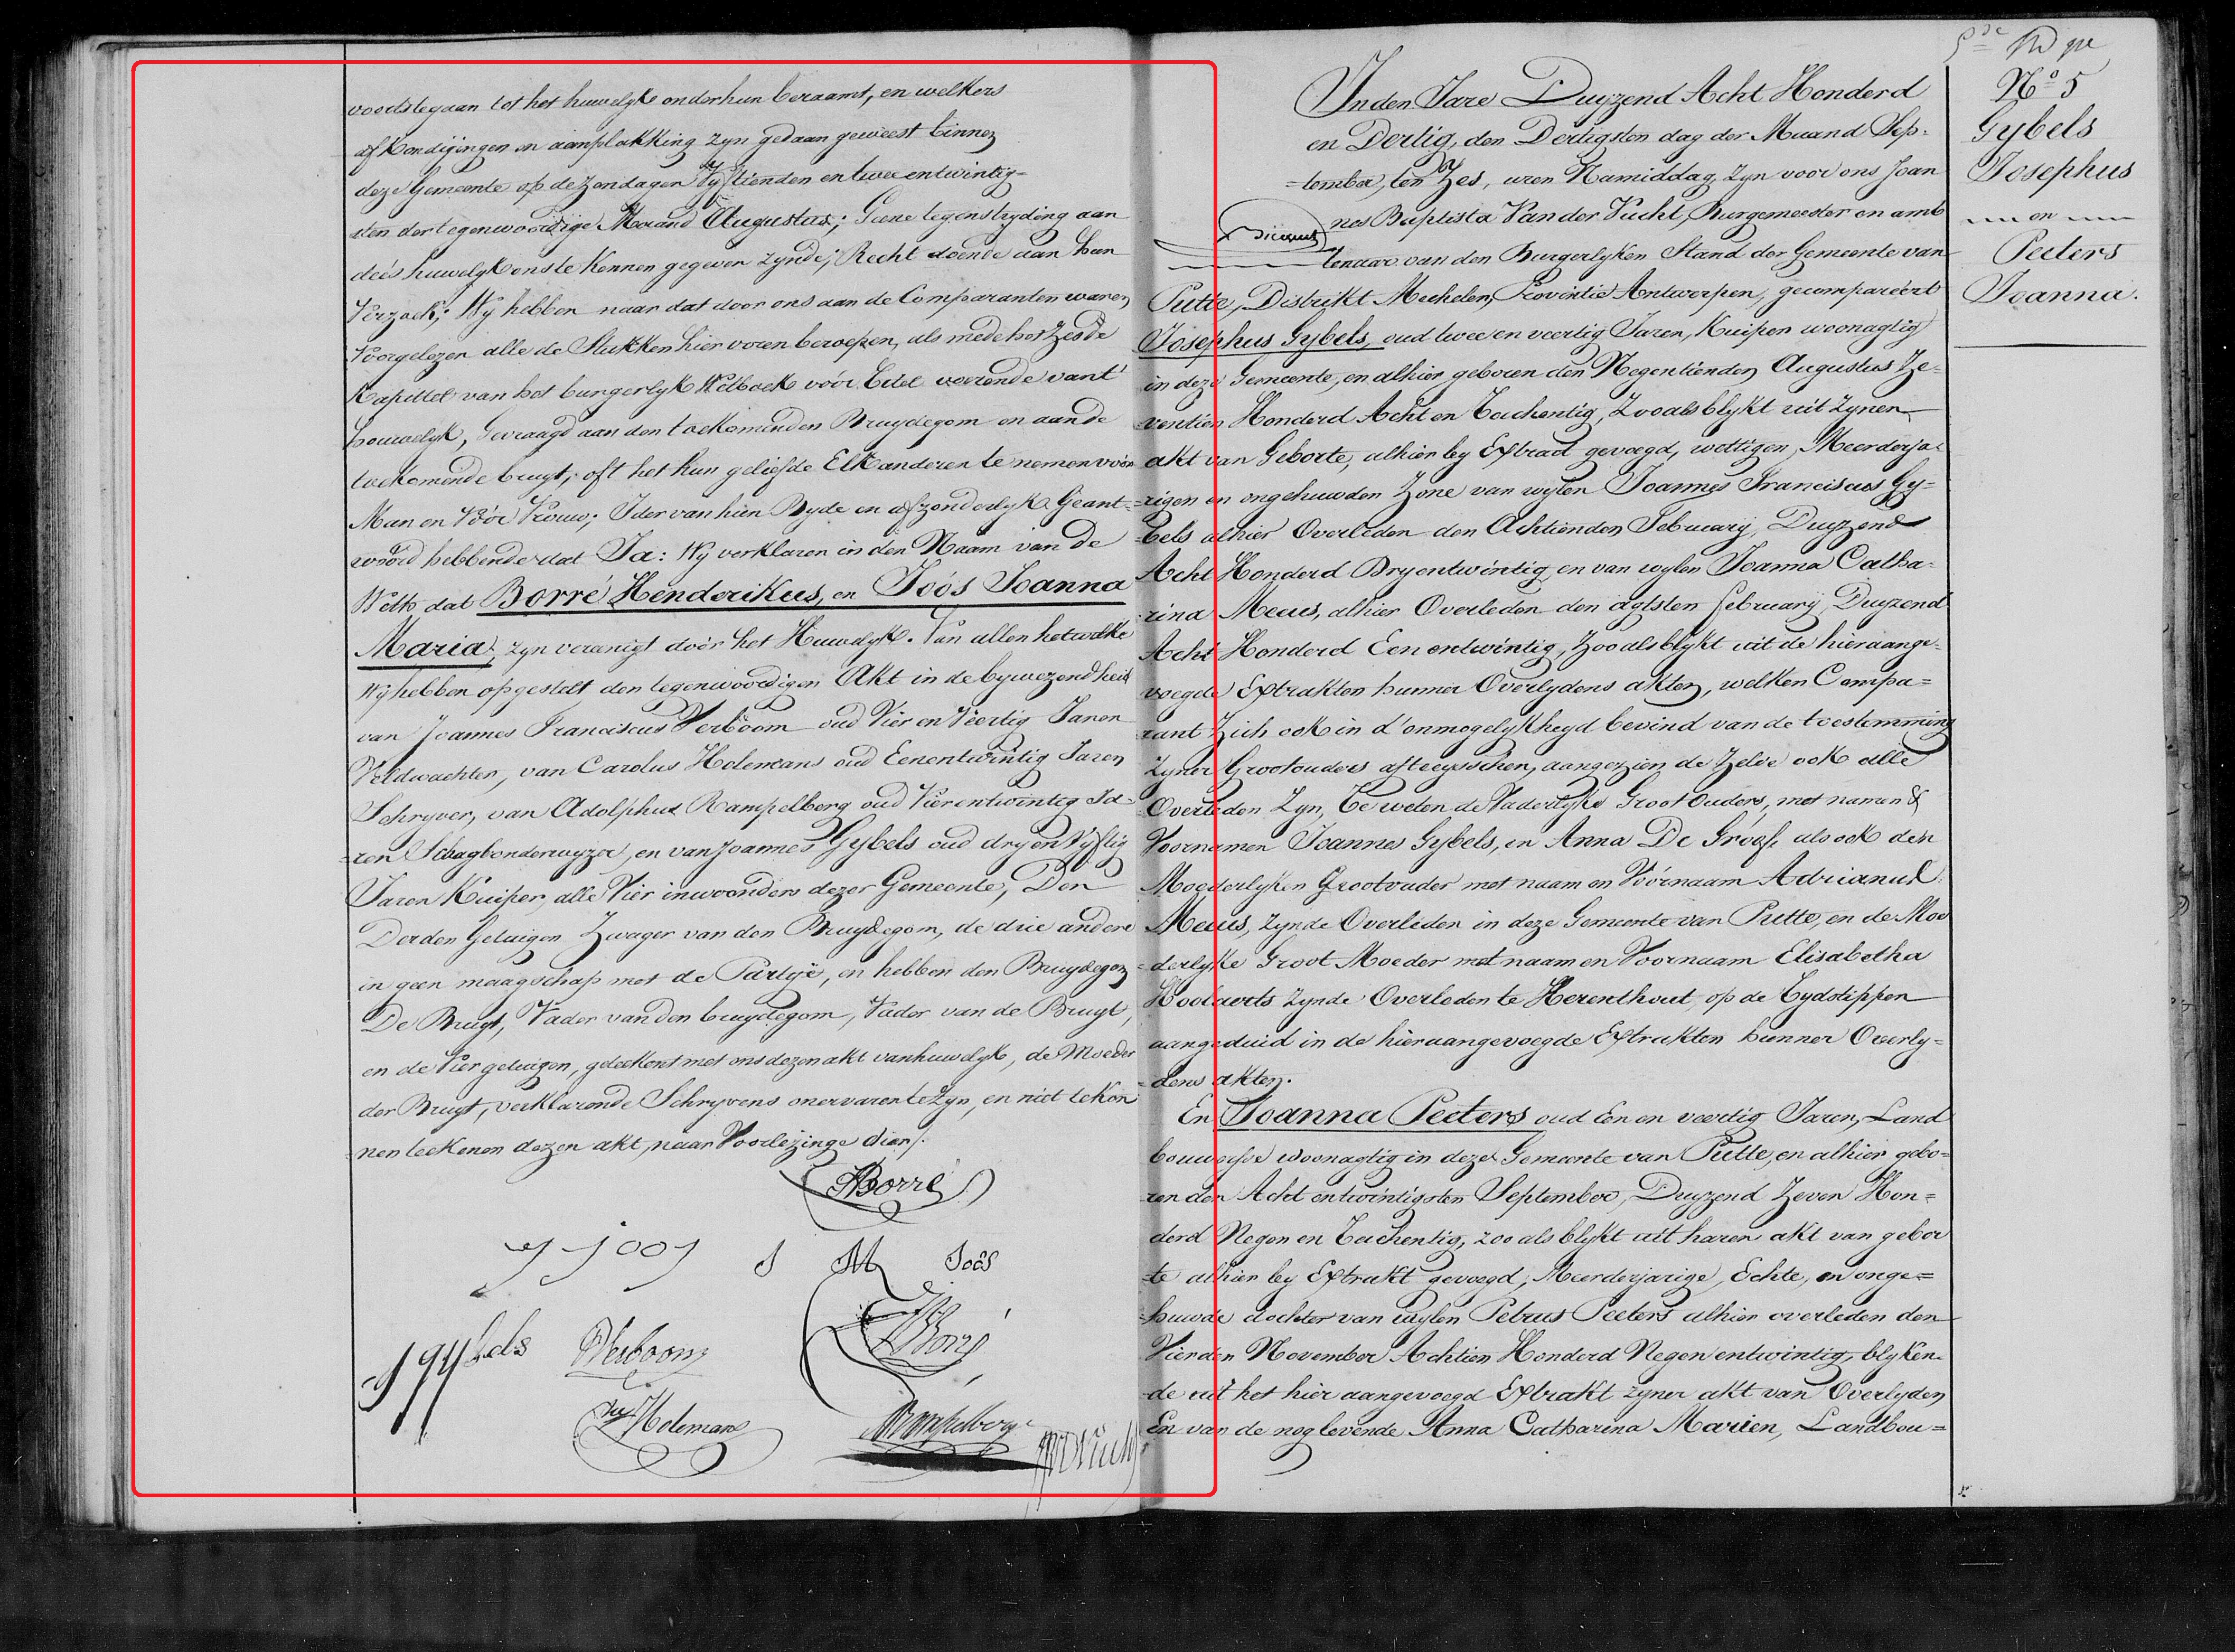 voordstegaan tot het huwelyk onderhun beraamt, en welkers
afkondigingen en aanplakking zyn gedaan geweest binnen
deze Gemeente op de zondagen Vyftienden en twee entwintig=
sten der tegenwoordige Maand Augustus; Geene tegenstryding aan
dees huwelyk ons te kennen gegeven zynde; Recht doende aan hun
Verzoek; Wy hebben naar dat door ons aan de Comparanten waren
Voorgelezen alle de Stukken hier voren beroepen, als mede het Zesde
Kapittel van het burgerlyk Wetboek vóór titel voerende vant
houwelyk, Gevraagd aan den toekomenden Bruydegom en aan de
toekomende bruyt, oft het hun geliefde Elkanderen te nemen vóór
Man en Vóór Vrouw; Ider van hien Byde en afzonderlyk Geant=
woord hebbende dat Ja: Wy verklaren in den Naam van de
Wette dat Borré Henderikus, en Joôs Joanna
Maria, zyn vereenigt door het Huwelyk. Van allen het welke
Wy hebben opgestelt den tegenwoordigen Akt in de bywezendheid
van Joannes Franciscus Verboom oud Vier en Veertig Jaren
Veldwachter, van Carolus Holemans oud Eenentwintig Jaren
Schryver, van Adolphus Rampelberg oud Vierentwintig Ja=
=ren Schoolonderwyzer, en van Joannes Gybels oud dry en Vyftig
Jaren Kuiper, alle Vier inwoonders dezer Gemeente, Den
Derden Getuigen Zwager van den Bruydegom, de drie andere
in geen maagschap met de Partye, en hebben den Bruydegom
De Bruyt, Vader van den bruydegom, Vader van de Bruyt,
en de Vier getuigen, geteekent met ons dezen akt van huwelyk, de Moeder
der Bruyt, verklarende Schryvens onervaren te Zyn, en niet te kon
=nen teekenen dezen akt, naar Voorlezinge dier/.
HBorré
J joos J M Joôs
J gybels Verboom Borré
Holemans Rampelberg
Gde
No 5
Gybels
Josephus
en
Peeters
Joanna.
In den Jare Duyzend Acht Honderd
en Dertig, den Dertigsten dag der Maand Sep=
=tember, ten Zes, uren Namiddag, Zyn voor ons Joan
nes Baptista Van der Vucht, Burgemeester en amb
tenaar van den Burgerlyken Stand der Gemeente van
Putte, Distrikt Mechelen, Provintie Antwerpen, gecompareert
Josephus Gybels, oud twee en veertig Jaren, Kuiper woonagtig
in deze Gemeente, en alhier geboren den Negentienden Augustus Ze=
ventien Honderd Acht en Tachentig, Zooals blykt uit zynen
akt van Geborte, alhier by Extract gevoegd, wettigen, Meerderja=
=rigen en ongehuwden Zone van wylen Joannes Franciscus Gy=
=bels alhier Overleden den Achtienden February, Duyzend
Acht Honderd Dryentwintig en van wylen Joanna Catha=
rina Meeus, alhier Overleden den agtsten february, Duyzend
Acht Honderd Een entwintig, Zoo als blykt uit de hieraange=
voegde Extrakten hunner Overlydens akten, welken Compa=
rant Zich ook in d'onmogelykheyd bevind van de toestemming
Zyner Grootouders afteeysschen, aangezien de Zelve ook alle
Overleden Zyn, Te weten de Vaderlyke Groot ouders, met namen &
Voornamen Joannes Gybels, en Anna De Groof, als ook den
Moederlyken Grootvader met naam en Vóórnaam Adrianus
Meeus, zynde Overleden in deze Gemeente van Putte, en de Moe
=derlyke Groot Moeder met naam en Voornaam Elisabetha
zynde Overleden te Herenthout, op de Tydstippen
aangeduid in de hieraangevoegde Extrakten hunner Overly=
=dens akten.
En Joanna Peeters oud Een en veertig Jaren, Land
bouwersse woonagtig in deze Gemeente van Putte, en alhier gebo=
ren den Acht entwintigsten September, Duyzend Zeven Hon=
derd Negen en Tachentig, zoo als blykt uit haren akt van gebor
=te alhier by Extrakt gevoegd, Meerderjarige, Echte, en onge=
=huwde dochter van wylen Petrus Peeters alhier overleden den
Vierden November Achtien Honderd Negen entwintig, blyken=
=de uit het hier aangevoegd Extrakt zyner akt van Overlyden
En van de nog levende Anna Catharina Mariën, Landbou=